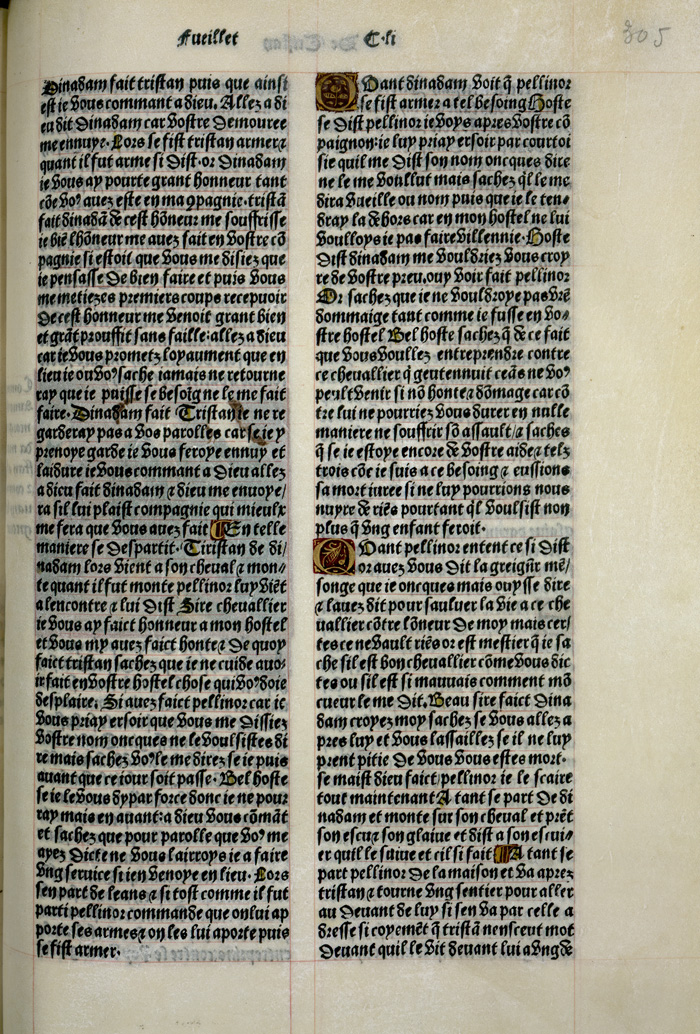 Fueillet C.li
305
Dinadam fait tristan puis que ainsi
est ie vous commant a dieu. Allez a di
eu dit Dinadam car vostre demouree
me ennuye. Lors se fist tristan armer ⁊
quant il fut arme si dist. or Dinadam
ie vous ay pourte grant honneur tant
cõe voꝰ auez este en ma ꝯpagnie. tristã
fait dinadã ⁊ cest hõneur me souffrisse
ie biẽ lhõneur me auez fait en vostre cõ
pagnie si estoit que vous me disiez que
ie pensasse de bien faire et puis vous
me metiezes premiers coups recepuoir
De cest honneur me venoit grant bien
et grãt prouffit sans faille: allez a dieu
car ie vous prometz loyaument que en
lieu ie ou voꝰ sache iamais ne retourne
ray que ie puisse se besoig ne le me fait
faire. Dinadam fait Tristan ie ne re
garderay pas a vos parolles car se ie y
prenoye garde ie vous feroye ennuy et
laidure ie vous commant a Dieu allez
a dieu fait dinadam ⁊ dieu me enuoye/
ra sil lui plaist compagnie qui mieulx
me fera que vous auez fait En telle
maniere se despartit. Tiristan de di/
nadam lors vient a son cheual ⁊ mon⸗
te quant il fut monte pellinor luy viẽt
a lencontre ⁊ lui dist Sire cheuallier
ie vous ay faict honneur a mon hostel
et vous my auez faict honte ⁊ de quoy
faict tristan sachez que ie ne cuide auo⸗
ir fait en vostre hostel chose qui voꝰ doie
desplaire. Si auez faict pellinor car ie
vous priay ersoir que vous me dissiez
vostre nom oncques ne le voulsistes di
re mais sachez voꝰ le me direz se ie puis
auant que ce iour soit passe. Bel hoste
se ie le vous dy par force donc ie ne pour
ray mais en auant: a dieu vous cõmãt
et sachez que pour parolle que voꝰ me
ayez dicte ne vous lairroys ie a faire
vng seruice si ien venoye en lieu. Lors
sen part de leans ⁊ si tost comme il fut
parti pellinor commande que on lui ap
porte ses armes ⁊ on les lui aporte puis
se fist armer.
Quant dinadam voit q̃ pellinor
se fist armer a tel besoing Hoste
se dist pellinor ie voys apres vostre cõ
paignon: ie luy priay ersoir par courtoi
sie quil me dist son nom oncques dire
ne le me voullut mais sachez q̃l le me
dira vueille ou non puis que ie le ten⸗
dray la dehors car en mon hostel ne lui
voulloys ie pas faire villennie. Hoste
dist dinadam me vouldriez vous croy
re de vostre preu. ouy voir fait pellinor
Or sachez que ie ne vouldroye pas vr̃e
dommaige tant comme ie fusse en vo⸗
stre hostel Bel hoste sachez q̃ de ce fait
que vous voullez entreprendre contre
ce cheuallier q̃ geutennuit ceãs ne voꝰ
peult venir si nõ honte ⁊ dõmage car cõ
tre lui ne pourriez vous durer en nulle
maniere ne souffrir sõ assault / ⁊ saches
q̃ se ie estoye encore de vostre aide ⁊ telz
trois cõe ie suis a ce besoing ⁊ eussions
sa mort iuree si ne luy pourrions nous
nuyre de riẽs pourtant q̃l voulsist non
plus q̃ vng enfant feroit.
Quant pellinor entent ce si dist
or auez vous dit la greigñr mẽ/
songe que ie oncques mais ouysse dire
⁊ lauez dit pour sauluer la vie a ce che
uallier cõtre lõneur de moy mais cer/
tes ce ne vault riẽs or est mestier q̃ ie sa
che sil est bon cheuallier cõme vous dic
tes ou sil est si mauuais comment mõ
cueur le me dit. Beau sire faict Dina
dam croyez moy sachez se vous allez a
pres luy et vous lassaillez se il ne luy
prent pitie de vous vous estes mort.
se maist dieu faict pellinor ie le scaire
tout maintenant A tant se part de di
nadam et monte sur son cheual et prẽt
son escu ⁊ son glaiue et dist a son escui⸗
er quil le suiue et cil si fait A tant se
part pellinor de la maison et va aprez
tristan ⁊ tourne vng sentier pour aller
au deuant de luy si sen va par celle a
dresse si coyemẽt q̃ tristã nensceut mot
Deuant quil le vit deuant lui a vng de